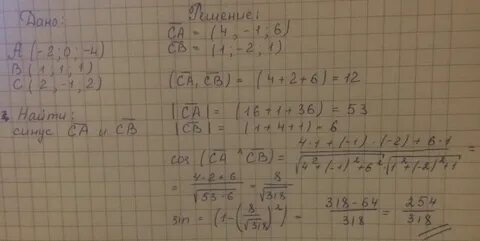 Дано:
A (-2; 0; -4)
B (1; 1; 1)
C (2; -1; 2)
Найти:
синус CA и CB
Решение:
CA = (4; -1; 6)
CB = (1; -2; 1)
(CA, CB) = (4+2+6) = 12
|CA| = (16+1+36) = 53
|CB| = (1+4+1) = 6
cos (CA ^ CB) = 4·1+(-1)·(-2)+6·1 / √4²+(-1)²+6² · √1²+(-2)²+1² =
= 4·2+6 / √53·6 = 8 / √318
sin = (1-(8/√318)²) = 318-64 / 318 = 254 / 318